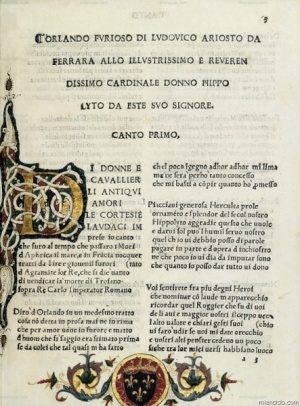 CANTO
3
ORLANDO FVRIOSO DI LVDOVICO ARIOSTO DA
FERRARA ALLO ILLVSTRISSIMO E REVEREN
DISSIMO CARDINALE DONNO HIPPO
LYTO DA ESTE SVO SIGNORE.
CANTO PRIMO,
DI DONNE E
CAVALLIER
LI ANTIQVI
AMORI
LE CORTESIE
LAVDACI IM
prese io canto
che furo al tempo che passaro i Mori
tratti da
dAgramāte lor Re, che si die vanto
di vendicar la morte di Troiano
sopra Re Carlo imperator Romano
Diro dOrlando in un medesmo tratto
cosa nō detta in prosa mai ne in rima
che per amor uēne in furore e matto
dhuom che si saggio era stimato prima
se da colei che tal quasi mha fatto
chel poco īgegno adhor adhor mi lima
me ne sera perho tanto concesso
che mi basti a
Piacciaui generosa Herculea prole
ornamēto e splendor del secol nostro
Hippolyto aggradir questo che uuole
e darui sol puo lhumil seruo uostro
quel chio ui debbio posso di parole
pagar in parte e dopera dinchiostro
ne che poco io ui dia da imputar sono
che quanto io posso dar tutto ui dono
Voi sentirete fra piu degni Heroi
che nominar cō laude
ricordar quel Ruggier che fu di uoi
lalto ualore e chiari gesti suoi
ui faro udir se uoi mi date orecchio
e uostri alti pensier cedeno un poco
si che tra lor miei uersi habbiano luoco
a 3